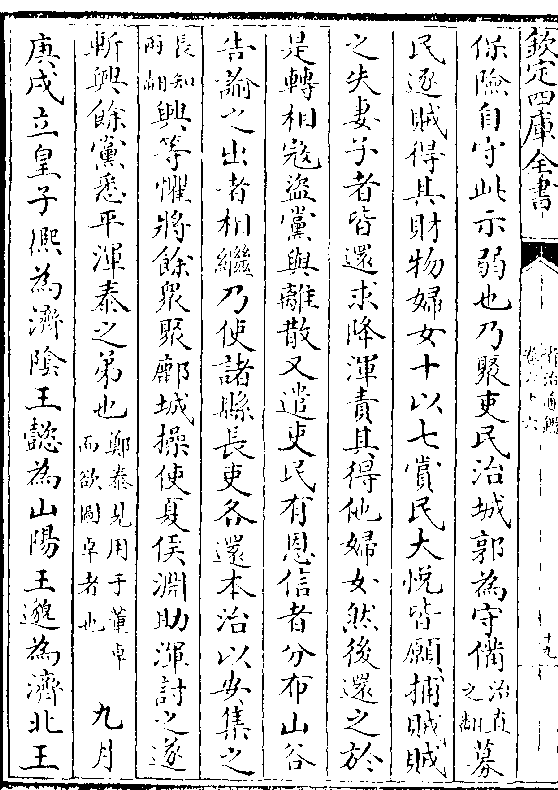 欽定四庫全書
資治通鑑
卷六十六
十九
保險自守此示弱也乃聚吏民治城郭為守備治直之翻募
民逐賊得其財物婦女十以七賞民大悅皆願捕賊賊
之失妻子者皆還求降渾責其得他婦女然後還之於
是轉相寇盜黨與離散又遣吏民有恩信者分布山谷
告諭之出者相繼乃使諸縣長吏各還本治以安集之
長知兩翻興等懼將餘衆聚鄜城操使夏侯淵助渾討之遂
斬興餘黨悉平渾泰之弟也鄭泰見用于董卓而欲圖卓者也九月
庚戌立皇子熙為濟陰王懿為山陽王邈為濟北王